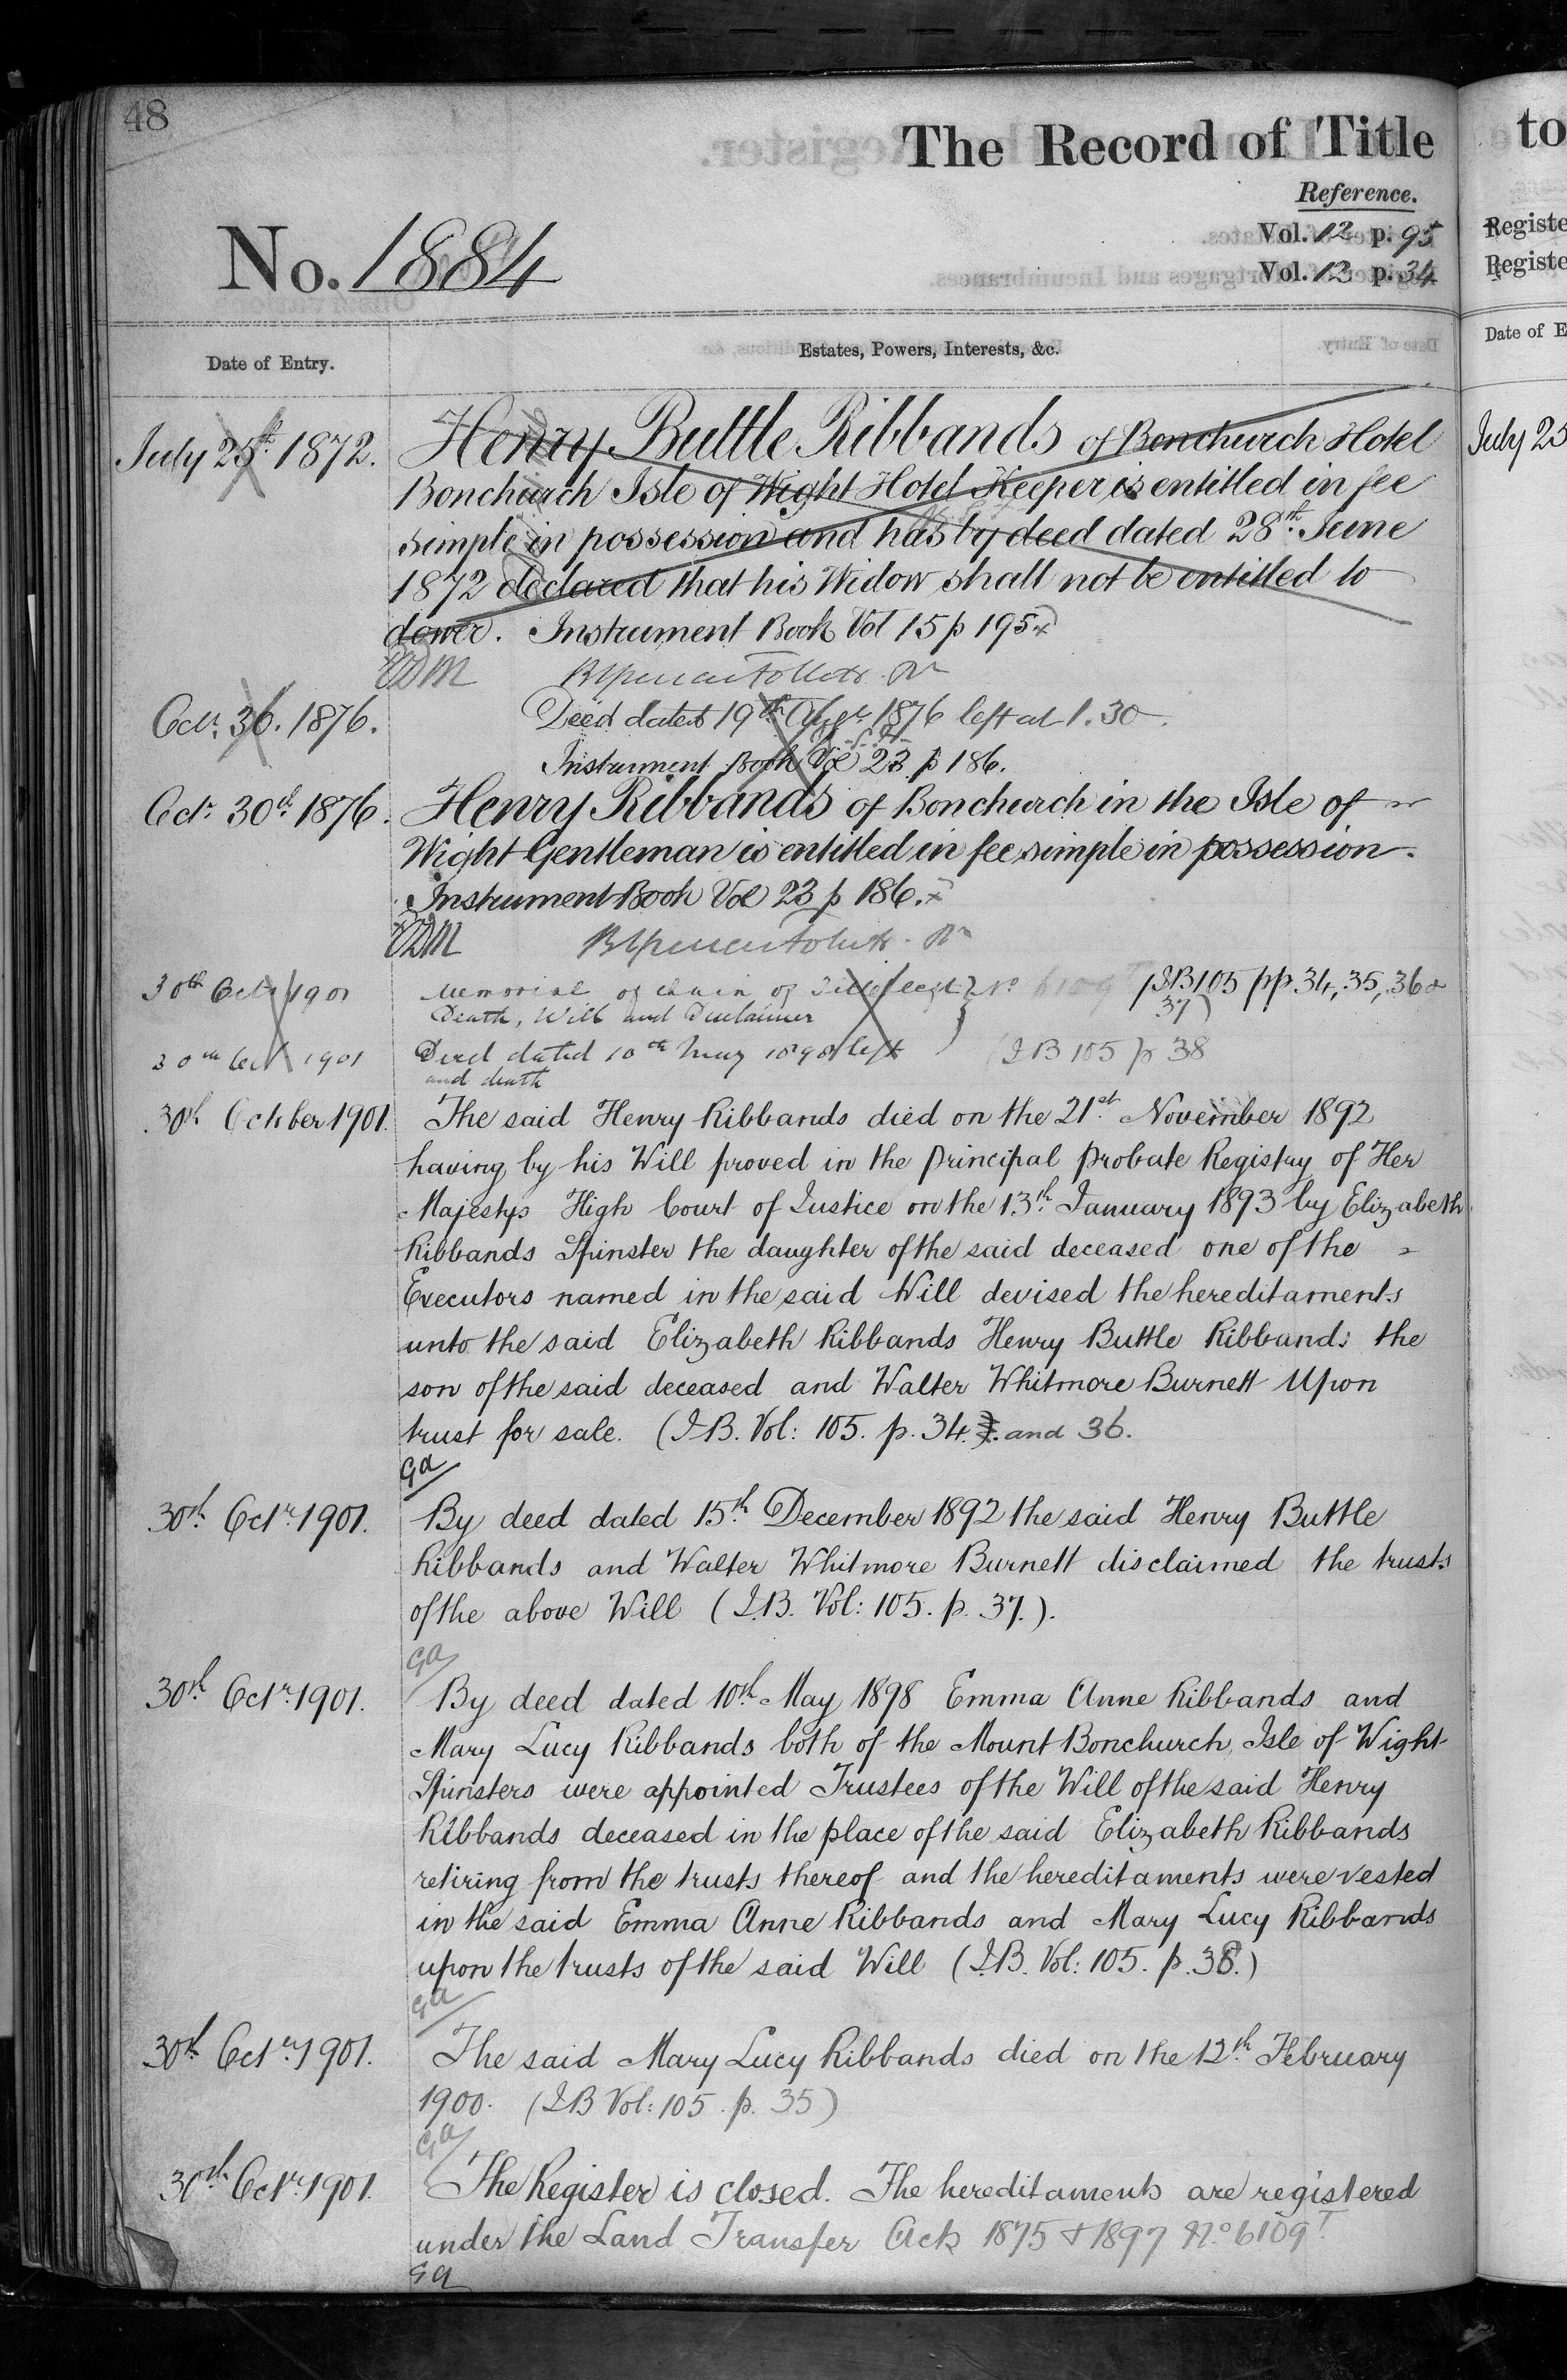 48
The Record of Title
to
Reference.
Vol. 12 p. 95
Vol. 13 p. 34
Registe
Registe
No. 1884
Date of Entry.
Estates, Powers, Interests, &c.
Date of E
July 25th 1872. Henry Buttle Ribbands of Bonchurch Hotel
July 25
Bonchurch Isle of Wight Hotel Keeper is entitled in fee
simple in possession and has by deed dated 28th June
1872 declared that his Widow shall not be entitled to
dower. Instrument Book Vol 15 p 195
Octr. 30. 1876. Deed dated 19th 1876 left at 1.30
Instrument Book Vol 23 p 186.
Octr 30th 1876. Henry Ribbands of Bonchurch in the Isle of
Wight Gentleman is entitled in fee simple in possession.
Instrument Book Vol 23 p 186.
30th Octr 1901 Memorial of chain of Title left No 6109 (IB 105 pp. 34, 35, 36 &
Death, Will and Disclaimer 37)
30th Oct 1901 Deed dated 10th May 1898 left (IB 105 p 38
and death
30th October 1901. The said Henry Ribbands died on the 21st November 1892
having by his Will proved in the Principal Probate Registry of Her
Majestys High Court of Justice on the 13th January 1893 by Elizabeth
Ribbands Spinster the daughter of the said deceased one of the
Executors named in the said Will devised the hereditaments
unto the said Elizabeth Ribbands Henry Buttle Ribbands the
son of the said deceased and Walter Whitmore Burnett Upon
trust for sale. (I.B. Vol: 105. p. 34. and 36.
GA
30th Octr. 1901. By deed dated 15th December 1892 the said Henry Buttle
Ribbands and Walter Whitmore Burnett disclaimed the trusts
of the above Will (I.B. Vol: 105. p. 37.).
GA
30th Octr. 1901. By deed dated 10th May 1898 Emma Anne Ribbands and
Mary Lucy Ribbands both of the Mount Bonchurch, Isle of Wight
Spinsters were appointed Trustees of the Will of the said Henry
Ribbands deceased in the place of the said Elizabeth Ribbands
retiring from the trusts thereof and the hereditaments were vested
in the said Emma Anne Ribbands and Mary Lucy Ribbands
upon the trusts of the said Will (I.B. Vol: 105. p. 38.)
GA
30th Octr. 1901. The said Mary Lucy Ribbands died on the 12th February
1900. (I.B Vol: 105. p. 35)
GA
30th Octr. 1901. The Register is closed. The hereditaments are registered
under the Land Transfer Acts 1875 & 1897 No. 6109 T
GA